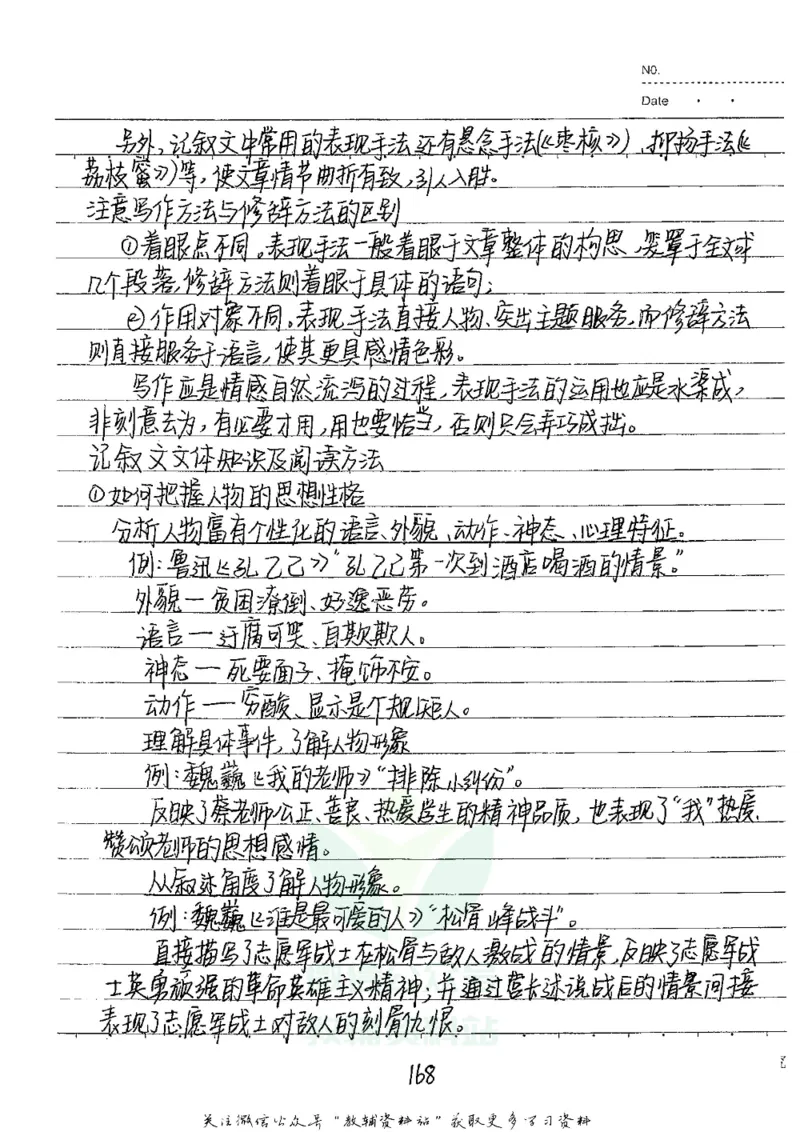 NO.
Date
另外,记叙文中常用的表现手法还有悬念手法(《枣核》)、抑扬手法(《
荔枝蜜》)等,使文章情节曲折有致,引人入胜。
注意写作方法与修辞方法的区别
①着眼点不同。表现手法一般着眼于文章整体的构思、笼罩于全文或
几个段落,修辞方法则着眼于具体的语句;
②作用对象不同。表现手法直接人物、突出主题服务,而修辞方法
则直接服务于语言,使其更具感情色彩。
写作应是情感自然流泻的过程,表现手法的运用也应是水渠成,
非刻意去为,有必要才用,用也要恰当,否则只会弄巧成拙。
记叙文文体知识及阅读方法
①如何把握人物的思想性格
分析人物富有个性化的语言、外貌、动作、神态、心理特征。
例:鲁迅《孔乙己》"孔乙己第一次到酒店喝酒的情景。"
外貌一贫困潦倒、好逸恶劳。
语言一迂腐可笑、自欺欺人。
神态一死要面子、掩饰不安。
动作一穷酸、显示是个规矩人。
理解具体事件,了解人物形象
例:魏巍《我的老师》"排除小纠纷"。
反映了蔡老师公正、善良、热爱学生的精神品质,也表现了"我"热爱、
赞颂老师的思想感情。
从叙述角度了解人物形象。
例:魏巍《谁是最可爱的人》"松骨峰战斗"。
直接描写了志愿军战士在松骨与敌人激战的情景,反映了志愿军战
士英勇顽强的革命英雄主义精神;并通过营长述说战后的情景间接
表现了志愿军战士对敌人的刻骨仇恨。
168
关注微信公众号"教辅资料站"获取更多学习资料